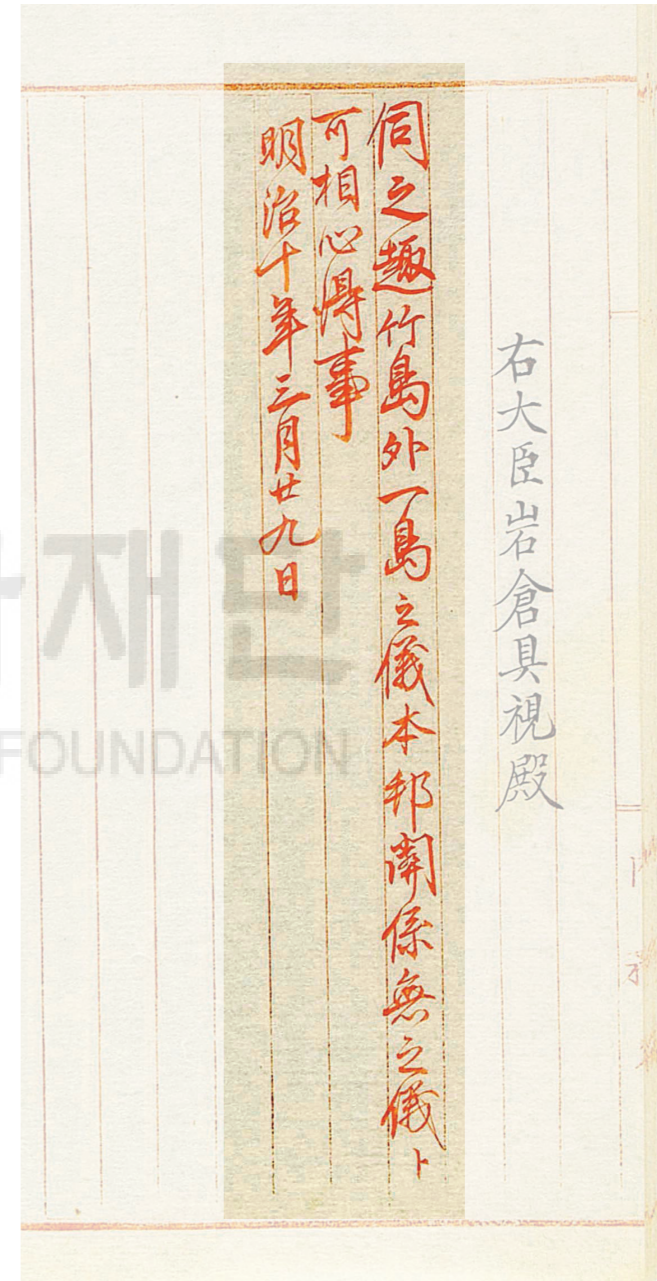 右大臣岩倉具視殿
伺之趣竹島外一島之儀本邦関係無之儀ト
可相心得事
明治十年三月廿九日
재단
FOUNDATION